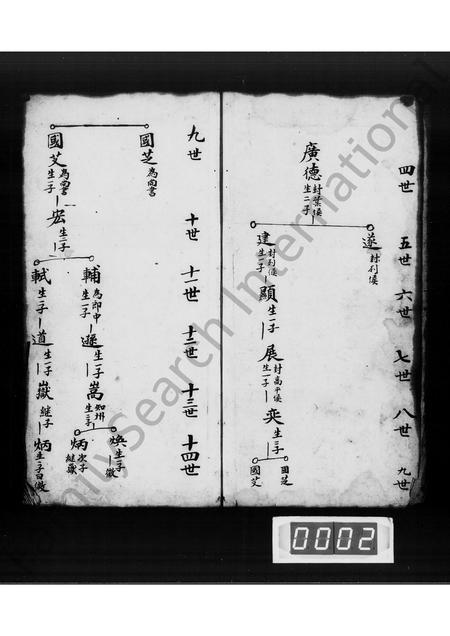 四世 五世 六世 七世 八世 九世
廣德 封葉侯 生二子
遂 封列侯
建 封列侯 生一子
顯 生一子
展 封高平侯 生一子
奕 生二子
國芝
國艾
九世 十世 十一世 十二世 十三世 十四世
國芝 為尚書
國艾 為尚書 生一子
宏 生二子
輔 為郎中 生一子
遜 生一子
嵩 知州 生二子
煥 生一子 徽
炳 次子 繼嶽
軾 生一子
道 生一子
嶽 繼子
炳 生一子曰
0002
FamilySearch International